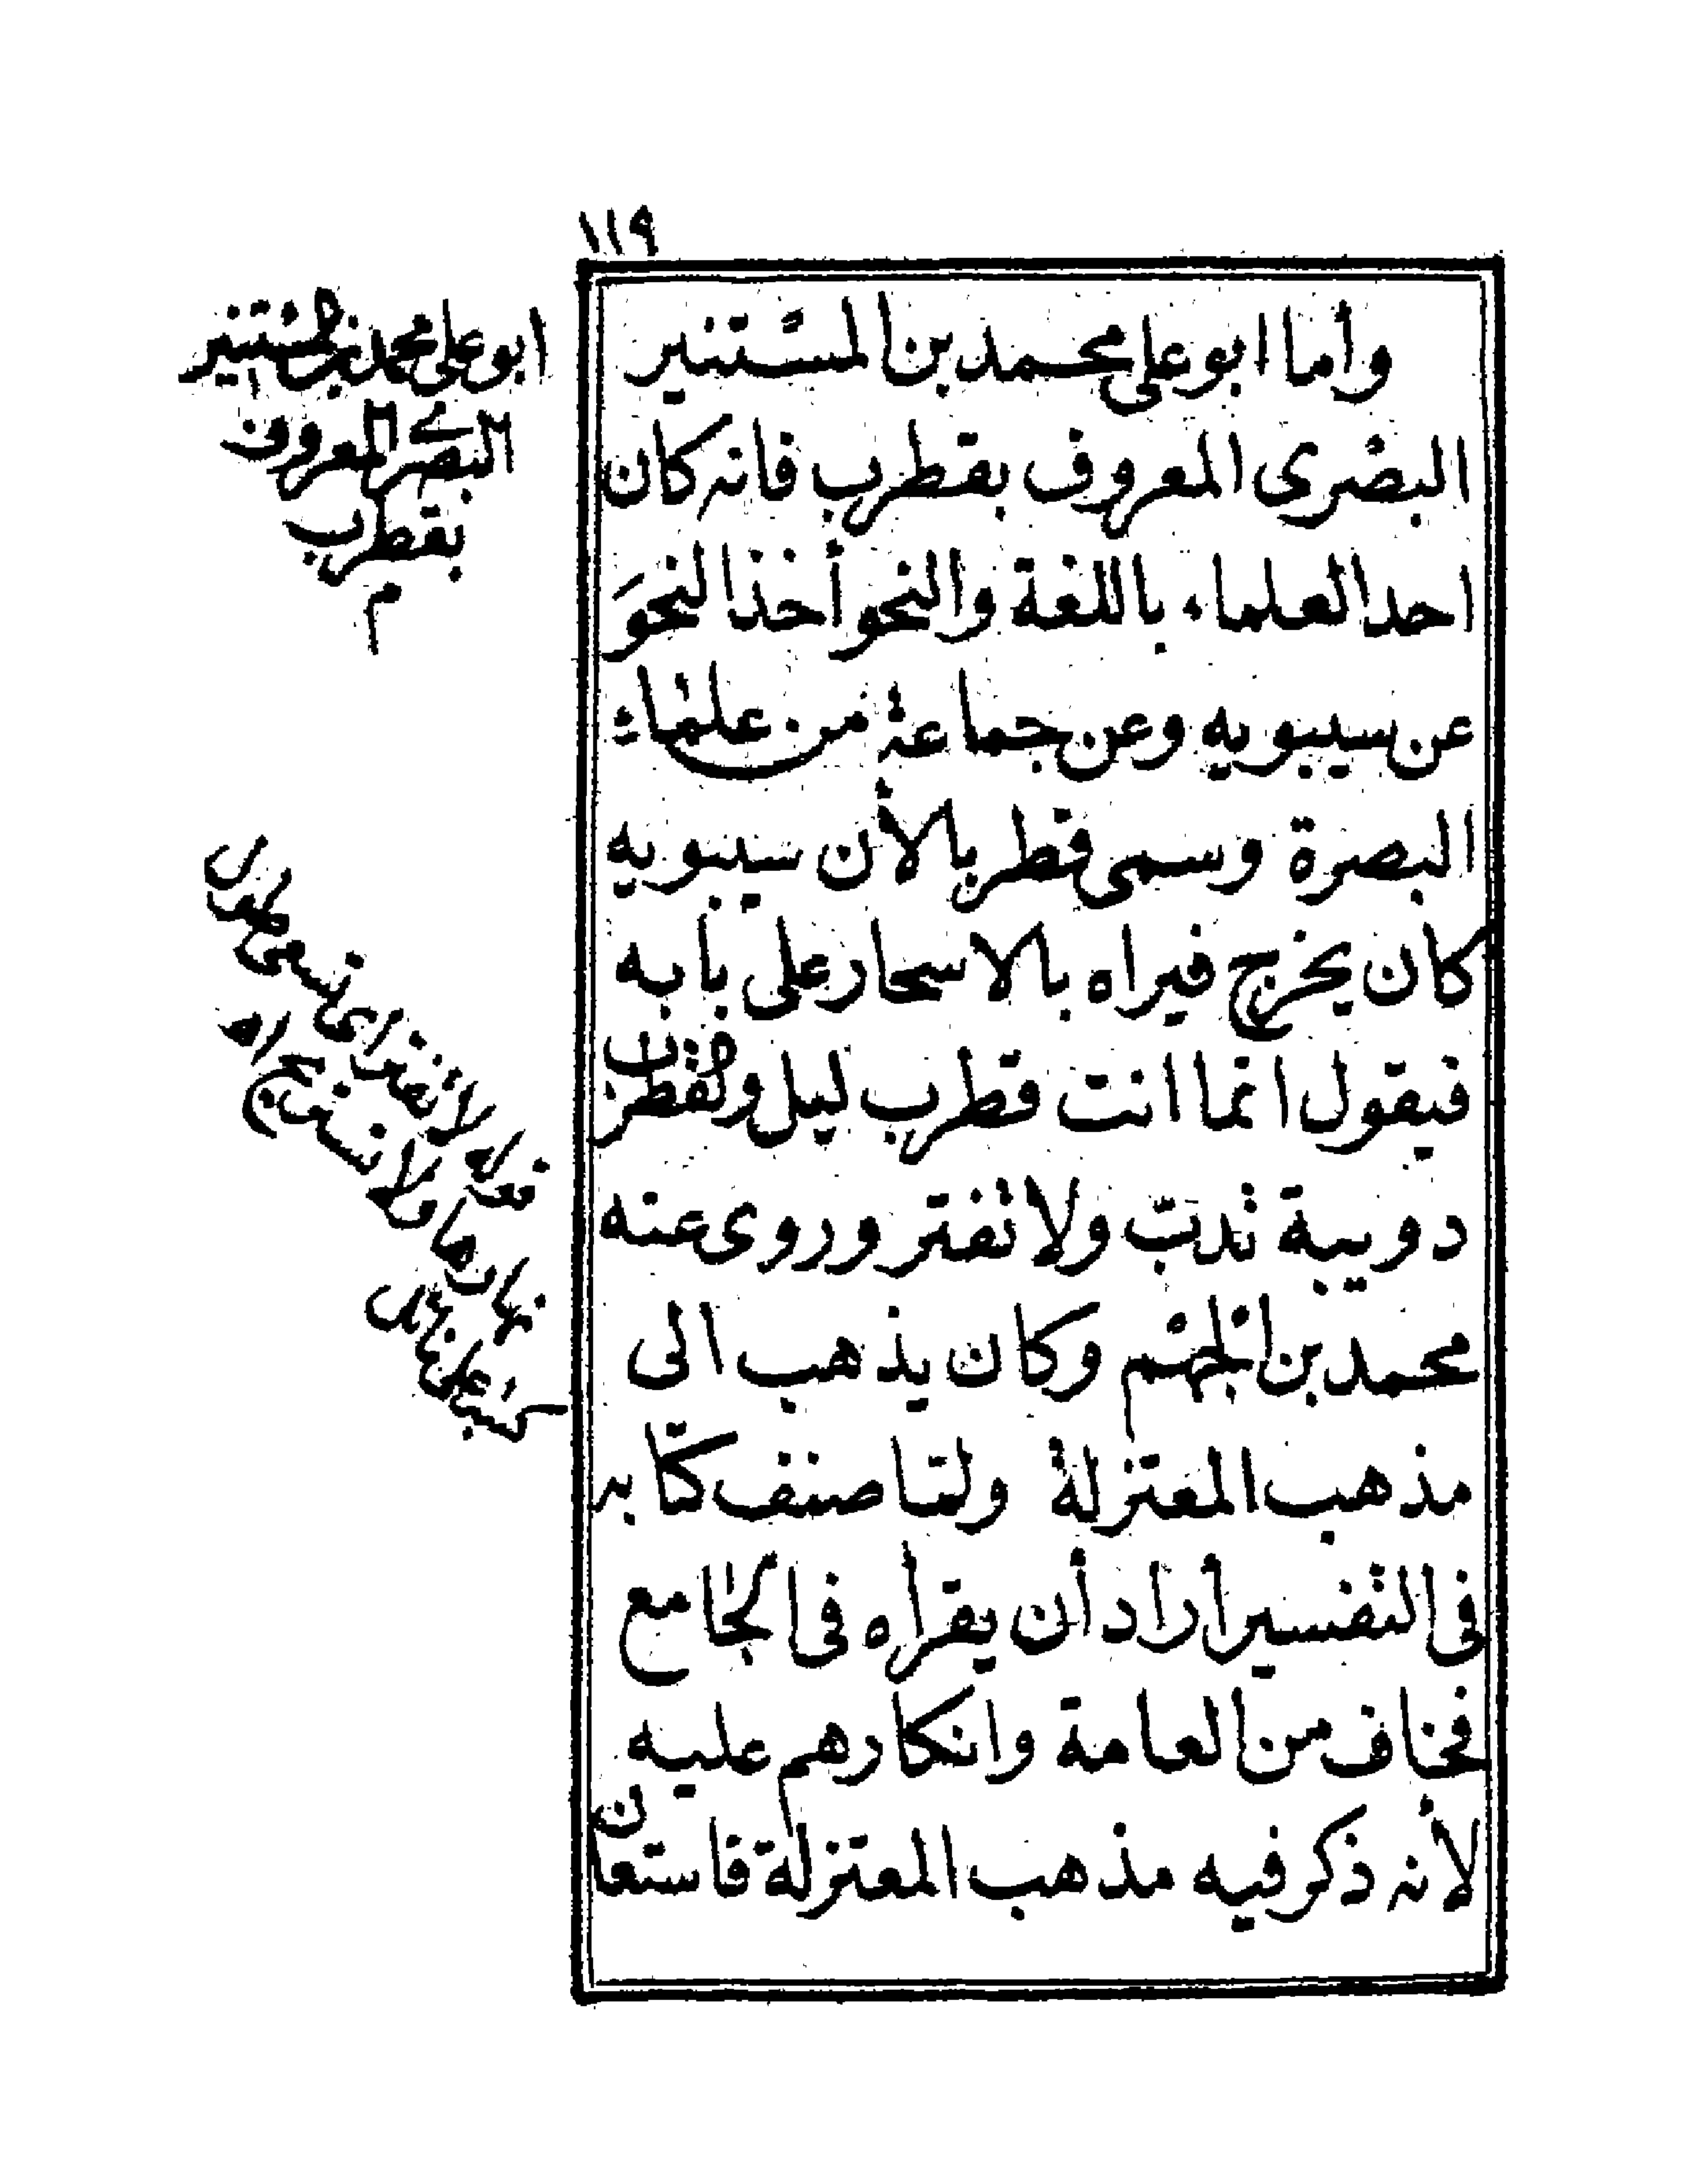 ١١٩
وأما ابو على محمد بن المستنير
البصرى المعروف بقطرب فانه كان
احد العلماء باللغة والنحو أخذ النحوَ
عن سيبويه وعن جماعة من علماء
البصرة وسمى قطربا لأن سيبويه
كان يخرج فيراه بالاسحار على بابه
فيقول انما انت قطرب ليل والقطرب
دويبة تدبّ ولا تفتر وروى عنه
محمد بن الجهْم وكان يذهب الى
مذهب المعتزلة ولما صنف كتابه
فى التفسير أراد أن يقرأه فى الجامع
فخاف من العامة وانكارهم عليه
لأنه ذكر فيه مذهب المعتزلة فاستعان
ابو على محمد بن المستنير
البصرى المعروف
بقطرب
م
قوله لا تفتر اى تسعى طول
نهارها ولا تستريح